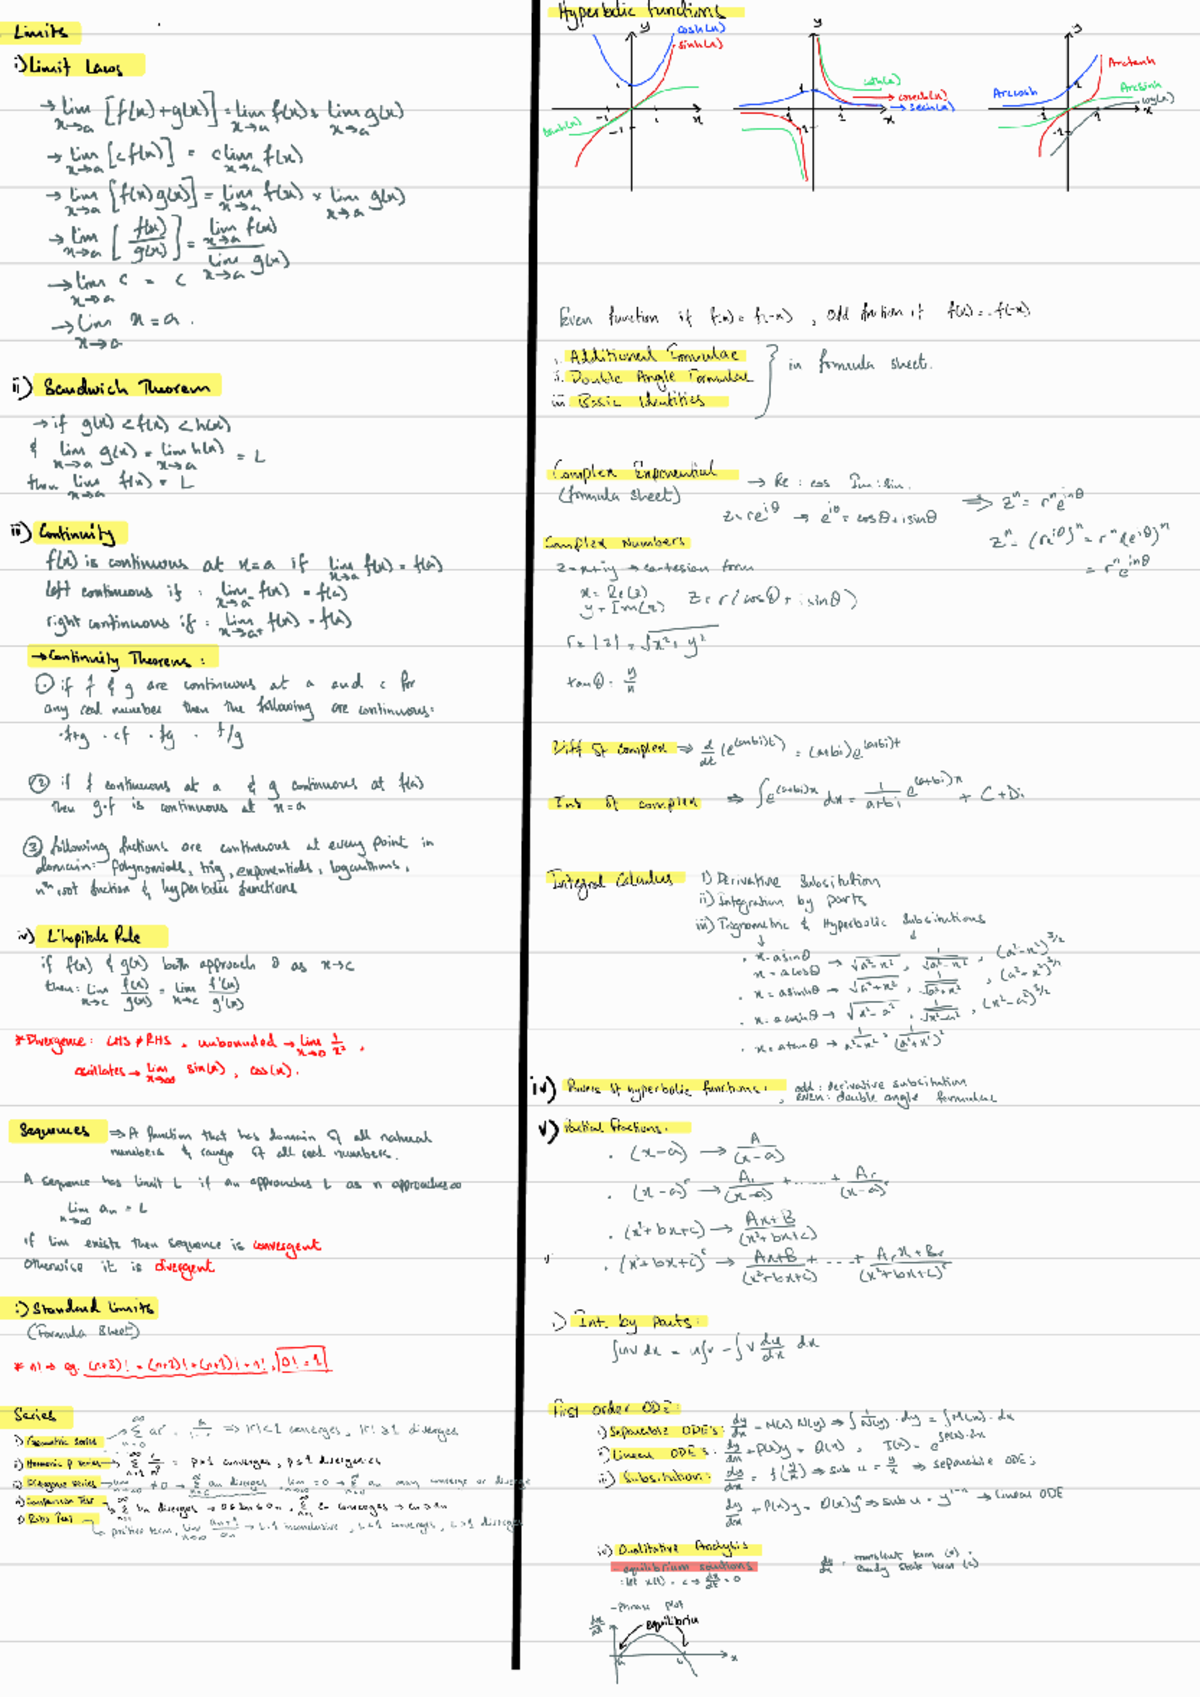 Limits
i) Limit Laws
→ lim x→a [f(x)+g(x)] = lim x→a f(x) + lim x→a g(x)
→ lim x→a [cf(x)] = c lim x→a f(x)
→ lim x→a [f(x)g(x)] = lim x→a f(x) × lim x→a g(x)
→ lim x→a [f(x)/g(x)] = lim x→a f(x) / lim x→a g(x)
→ lim x→a c = c
→ lim x→a x = a.
ii) Sandwich Theorem
→ if g(x) < f(x) < h(x)
& lim x→a g(x) = lim x→a h(x) = L
then lim x→a f(x) = L
iii) Continuity
f(x) is continuous at x=a if lim x→a f(x) = f(a)
left continuous if : lim x→a⁻ f(x) = f(a)
right continuous if : lim x→a⁺ f(x) = f(a)
→ Continuity Theorems :
① if f & g are continuous at a and c for
any real number then the following are continuous:
· f+g · cf · fg · f/g
② if f continuous at a & g continuous at f(a)
then g∘f is continuous at x=a
③ following functions are continuous at every point in
domain: Polynomials, trig, exponentials, logarithms,
nth root function & hyperbolic functions
iv) L'hopitals Rule
if f(x) & g(x) both approach 0 as x→c
then: lim x→c f(x)/g(x) = lim x→c f'(x)/g'(x)
* Divergence: LHS ≠ RHS, unbounded → lim x→0 1/x²,
oscillates → lim x→∞ sin(x), cos(x).
Sequences ⇒ A function that has domain of all natural
numbers & range of all real numbers.
A sequence has limit L if an approaches L as n approaches ∞
lim n→∞ an = L
if lim exists then sequence is convergent
otherwise it is divergent
i) Standard Limits
(Formula Sheet)
0! = 1
Series
i) Geometric series → ∑ n=0 ∞ ar ⇒ |r|<1 converges, |r|≥1 diverges
ii) Harmonic p series → p>1 converges, p≤1 divergences
iii) Divergence series
iv) Comparison Test
v) Ratio Test
positive term, lim n→∞ an+1/an → L=1 inconclusive, L<1 converges, L>1 diverges
Hyperbolic functions
y cosh(x) sinh(x) tanh(x) x
y coth(x) cosech(x) sech(x) x
y Arccosh Arctanh Arcsinh log(x) x
Even function if f(x) = f(-x), odd function if f(x) = -f(-x)
i. Additional Formulae
ii. Double Angle Formulae
iii. Basic Identities
in formula sheet.
Complex Exponential → Re : cos Im : sin.
(formula sheet)
z = re^iθ → e^iθ = cosθ + isinθ ⇒ z^n = r^n e^inθ
z^n = (re^iθ)^n = r^n (e^iθ)^n
= r^n e^inθ
Complex Numbers
z = x+iy → cartesian form
x = Re(z)
y = Im(z) z = r(cosθ + isinθ)
r = |z| = √x² + y²
tanθ = y/x
Diff of complex ⇒ d/dt (e^(a+bi)t) = (a+bi)e^(a+bi)t
Int of complex ⇒ ∫e^(a+bi)x dx = 1/a+bi e^(a+bi)x + C+Di
Integral Calculus i) Derivative Subsitution
ii) Integration by parts
iii) Trignometric & Hyperbolic Subsitutions
· x = asinθ
x = acosθ → √a²-x², 1/√a²-x², (a²-x²)^3/2
· x = asinhθ → √a²+x², 1/√a²+x²
· x = acoshθ → √x²-a², 1/√x²-a², (x²-a²)^3/2
· x = atanθ
iv) Powers of hyperbolic functions: odd : derivative subsitution
, even : double angle formulae
v) Partial Fractions:
· (x-a) → A/(x-a)
· (x-a)^r → A1/(x-a) + ..... + Ar/(x-a)^r
· (x²+bx+c) → Ax+B/(x²+bx+c)
· (x²+bx+c)^r → Ax+B/(x²+bx+c) + .... + Arx+Br/(x²+bx+c)^r
i) Int. by parts:
∫uv dx = u∫v - ∫v du/dx dx
First order ODE:
i) Separable ODE's: dy/dx = M(x) N(y) ⇒ ∫1/N(y) · dy = ∫M(x) · dx
ii) Linear ODE's: dy/dx + P(x)y = Q(x), I(x) = e^∫P(x)·dx
iii) Subsitution: dy/dx = f(y/x) ⇒ sub u = y/x ⇒ separable ODE's
dy/dx + P(x)y = Q(x)y^n ⇒ sub u = y^1-n → linear ODE
iv) Qualitative Analysis
- equilibrium solutions
: let x(t) = c → dx/dt = 0
transient term
steady state term
- phase plot
dx/dt equilibriu x